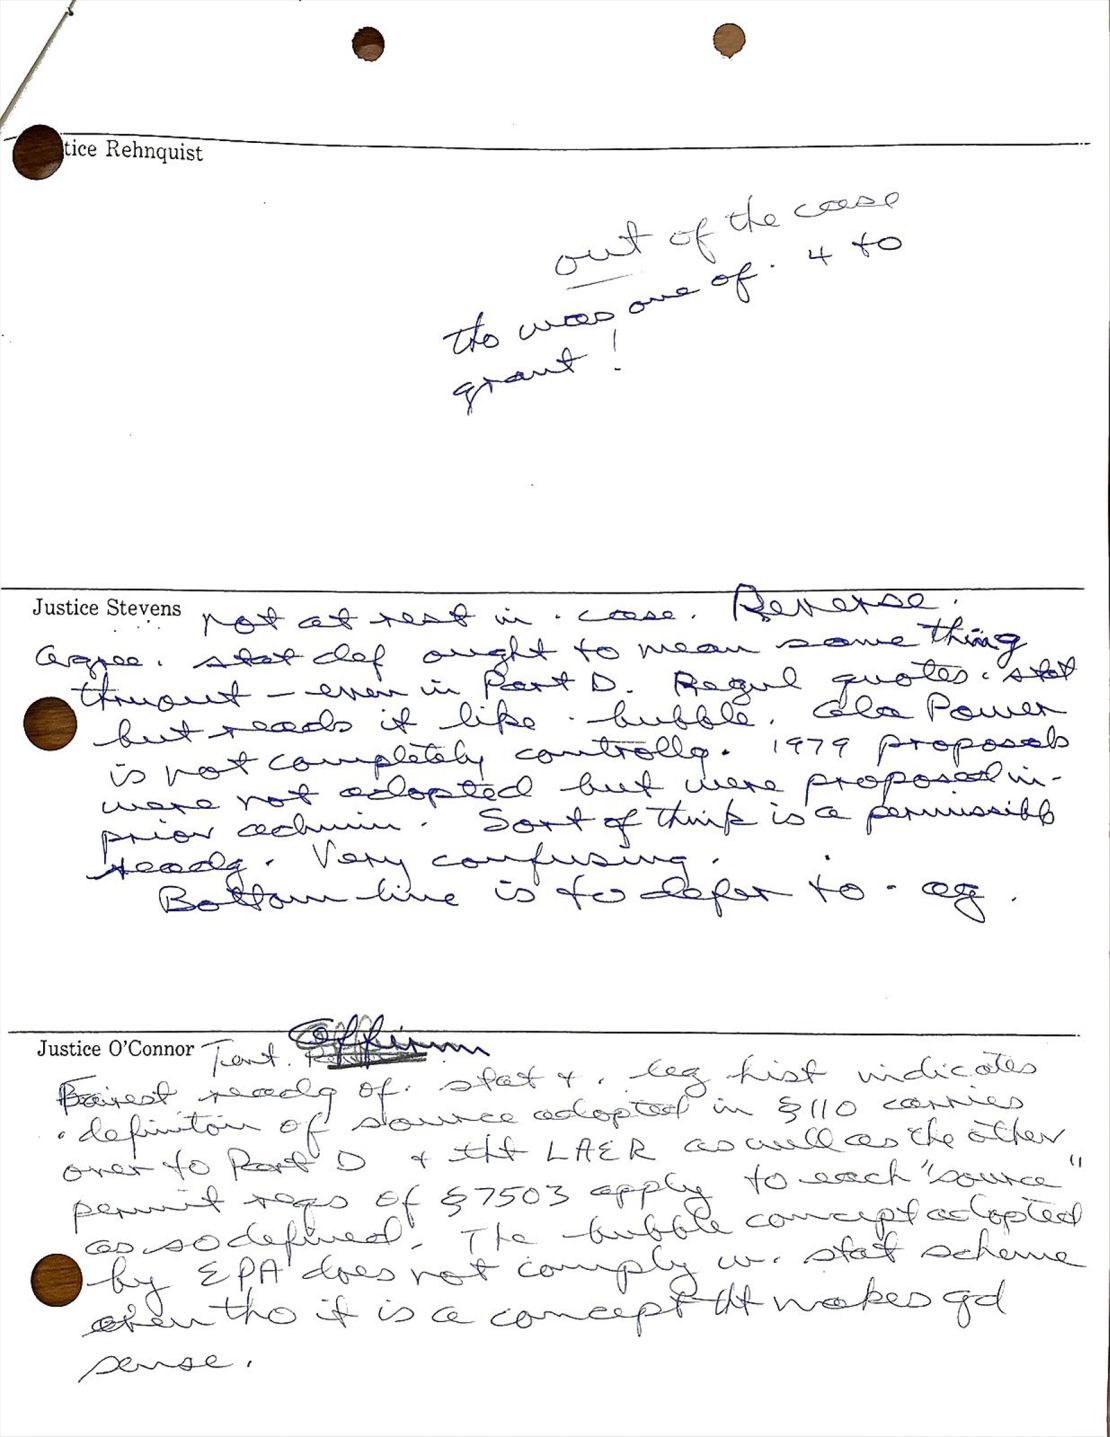 tice Rehnquist
out of the case
tho was one of · 4 to
grant!
Justice Stevens not at rest in · case. Reverse.
agree. stat def ought to mean same thing
thruout – even in Part D. Regul quotes · stat
but reads it like · bubble. Ala Power
is not completely controllg. 1979 proposals
were not adopted but were proposed in ·
prior admin. Sort of think is a permissibl
readg. Very confusing.
Bottom line is to defer to · ag.
Justice O'Connor Tent. Affirm
Fairest readg of · stat + · leg hist indicates
· definiton of source adopted in §110 carries
over to Part D + tht LAER as well as the other
permit reqs of §7503 apply to each "source"
as so defined. The bubble concept adopted
by EPA does not comply w. stat scheme
even tho it is a concept tht makes gd
sense.